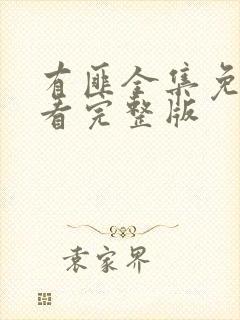 有匪全集免
看完整版
袁家界